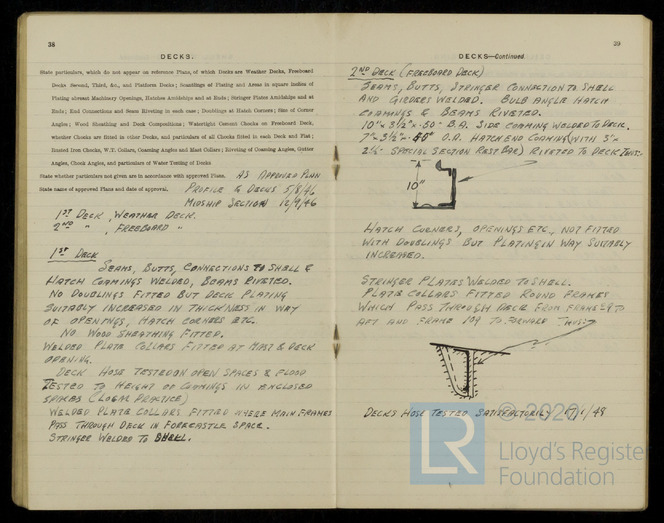 38
DECKS.
State particulars, which do not appear on reference Plans, of which Decks are Weather Decks, Freeboard
Decks Second, Third, &c., and Platform Decks; Scantlings of Plating and Areas in square inches of
Plating abreast Machinery Openings, Hatches Amidships and at Ends; Stringer Plates Amidships and at
Ends; End Connections and Seam Riveting in each case; Doublings at Hatch Corners; Size of Corner
Angles; Wood Sheathing and Deck Compositions; Watertight Cement Chocks on Freeboard Deck,
whether Chocks are fitted in other Decks, and particulars of all Chocks fitted in each Deck and Flat;
Boated Iron Chocks, W.T. Collars, Coaming Angles and Mast Collars; Riveting of Coaming Angles, Gutter
Angles, Chock Angles, and particulars of Water Testing of Decks
State whether particulars not given are in accordance with approved Plans. AS APPROVED PLAN
State name of approved Plans and date of approval. PROFILE & DECKS 5/8/46
MIDSHIP SECTION 12/9/46
1ST DECK, WEATHER DECK.
2ND " , FREEBOARD "
1ST DECK
SEAMS, BUTTS, CONNECTIONS TO SHELL &
HATCH COAMINGS WELDED, BEAMS RIVETED.
NO DOUBLINGS FITTED BUT DECK PLATING
SUITABLY INCREASED IN THICKNESS IN WAY
OF OPENINGS, HATCH CORNERS ETC.
NO WOOD SHEATHING FITTED.
WELDED PLATE COLLARS FITTED AT MAST & DECK
OPENING.
DECK HOSE TESTED ON OPEN SPACES & FLOOD
TESTED TO HEIGHT OF COAMINGS IN ENCLOSED
SPACES (LOCAL PRACTICE)
WELDED PLATE COLLARS FITTED WHERE MAIN FRAMES
PASS THROUGH DECK IN FORECASTLE SPACE.
STRINGER WELDED TO SHELL.
39
DECKS—Continued
2ND DECK (FREEBOARD DECK)
SEAMS, BUTTS, STRINGER CONNECTION TO SHELL
AND GIRDERS WELDED. BULB ANGLE HATCH
COAMINGS & BEAMS RIVETED.
10" x 3½" x .50" B.A. SIDE COAMING WELDED TO DECK.
7" x 3½" x .50" O.A. HATCH END COAMING (WITH 3" x
2¼" SPECIAL SECTION REST BAR) RIVETED TO DECK THUS:-
10"
HATCH CORNERS, OPENINGS ETC, NOT FITTED
WITH DOUBLINGS BUT PLATING IN WAY SUITABLY
INCREASED.
STRINGER PLATES WELDED TO SHELL.
PLATE COLLARS FITTED ROUND FRAMES
WHICH PASS THROUGH DECK FROM FRAME 29 TO
AFT AND FRAME 109 TO FORWARD THUS:-
DECKS HOSE TESTED SATISFACTORILY 17/1/48
© 2020
LR
Lloyd's Register
Foundation